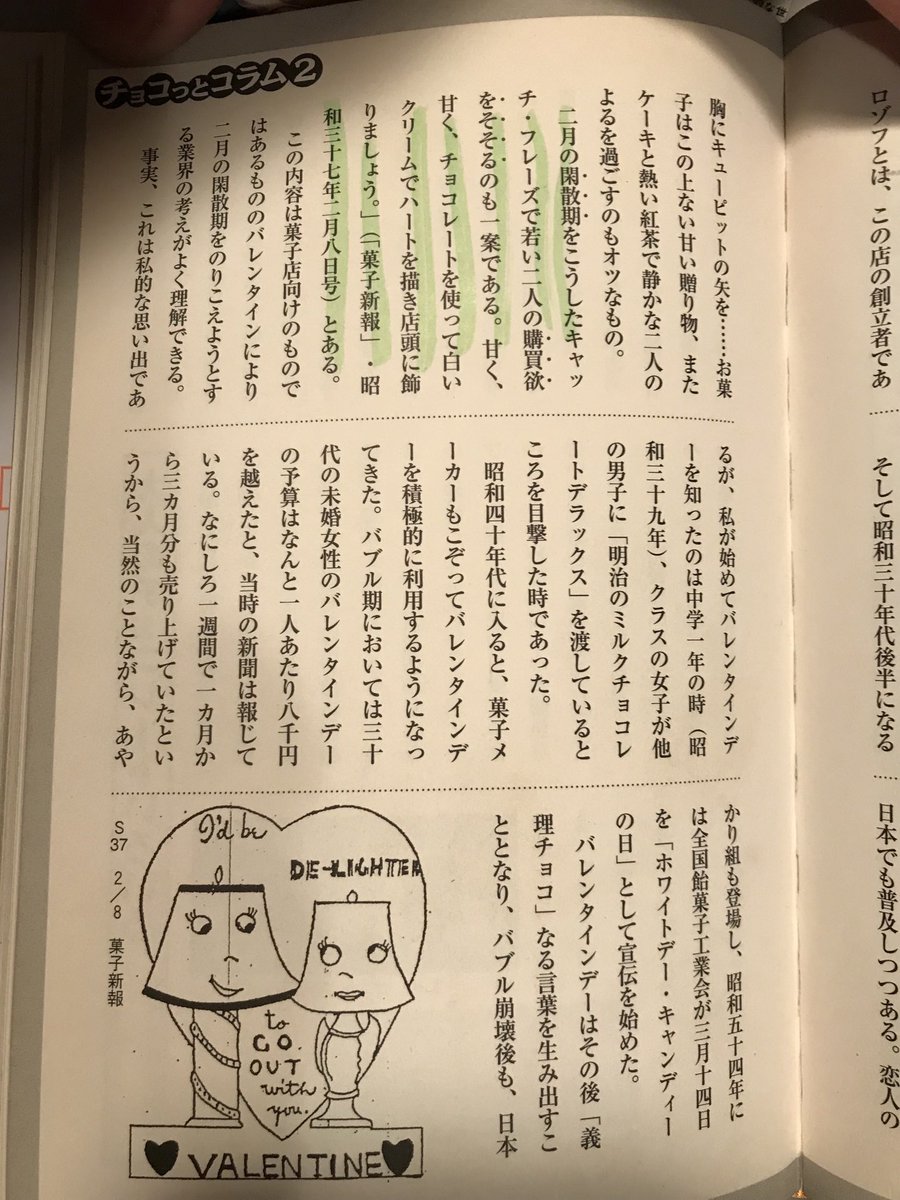 チョコっとコラム2
胸にキューピットの矢を……お菓
子はこの上ない甘い贈り物、また
ケーキと熱い紅茶で静かな二人の
よるを過ごすのもオツなもの。
二月の閑散期をこうしたキャッ
チ・フレーズで若い二人の購買欲
をそそるのも一案である。甘く、
甘く、チョコレートを使って白い
クリームでハートを描き店頭に飾
りましょう。」(「菓子新報」・昭
和三十七年二月八日号)とある。
この内容は菓子店向けのもので
はあるもののバレンタインにより
二月の閑散期をのりこえようとす
る業界の考えがよく理解できる。
事実、これは私的な思い出であ
るが、私が始めてバレンタインデ
ーを知ったのは中学一年の時(昭
和三十九年)、クラスの女子が他
の男子に「明治のミルクチョコレ
ートデラックス」を渡していると
ころを目撃した時であった。
昭和四十年代に入ると、菓子メ
ーカーもこぞってバレンタインデ
ーを積極的に利用するようになっ
てきた。バブル期においては三十
代の未婚女性のバレンタインデー
の予算はなんと一人あたり八千円
を越えたと、当時の新聞は報じて
いる。なにしろ一週間で一カ月か
ら三カ月分も売り上げていたとい
うから、当然のことながら、あや
かり組も登場し、昭和五十四年に
は全国飴菓子工業会が三月十四日
を「ホワイトデー・キャンディー
の日」として宣伝を始めた。
バレンタインデーはその後「義
理チョコ」なる言葉を生み出すこ
ととなり、バブル崩壊後も、日本
I'd be
DE-LIGHTED
to
GO
OUT
with
you.
VALENTINE
S37 2/8 菓子新報
ロゾフとは、この店の創立者であ
そして昭和三十年代後半になる
日本でも普及しつつある。恋人の